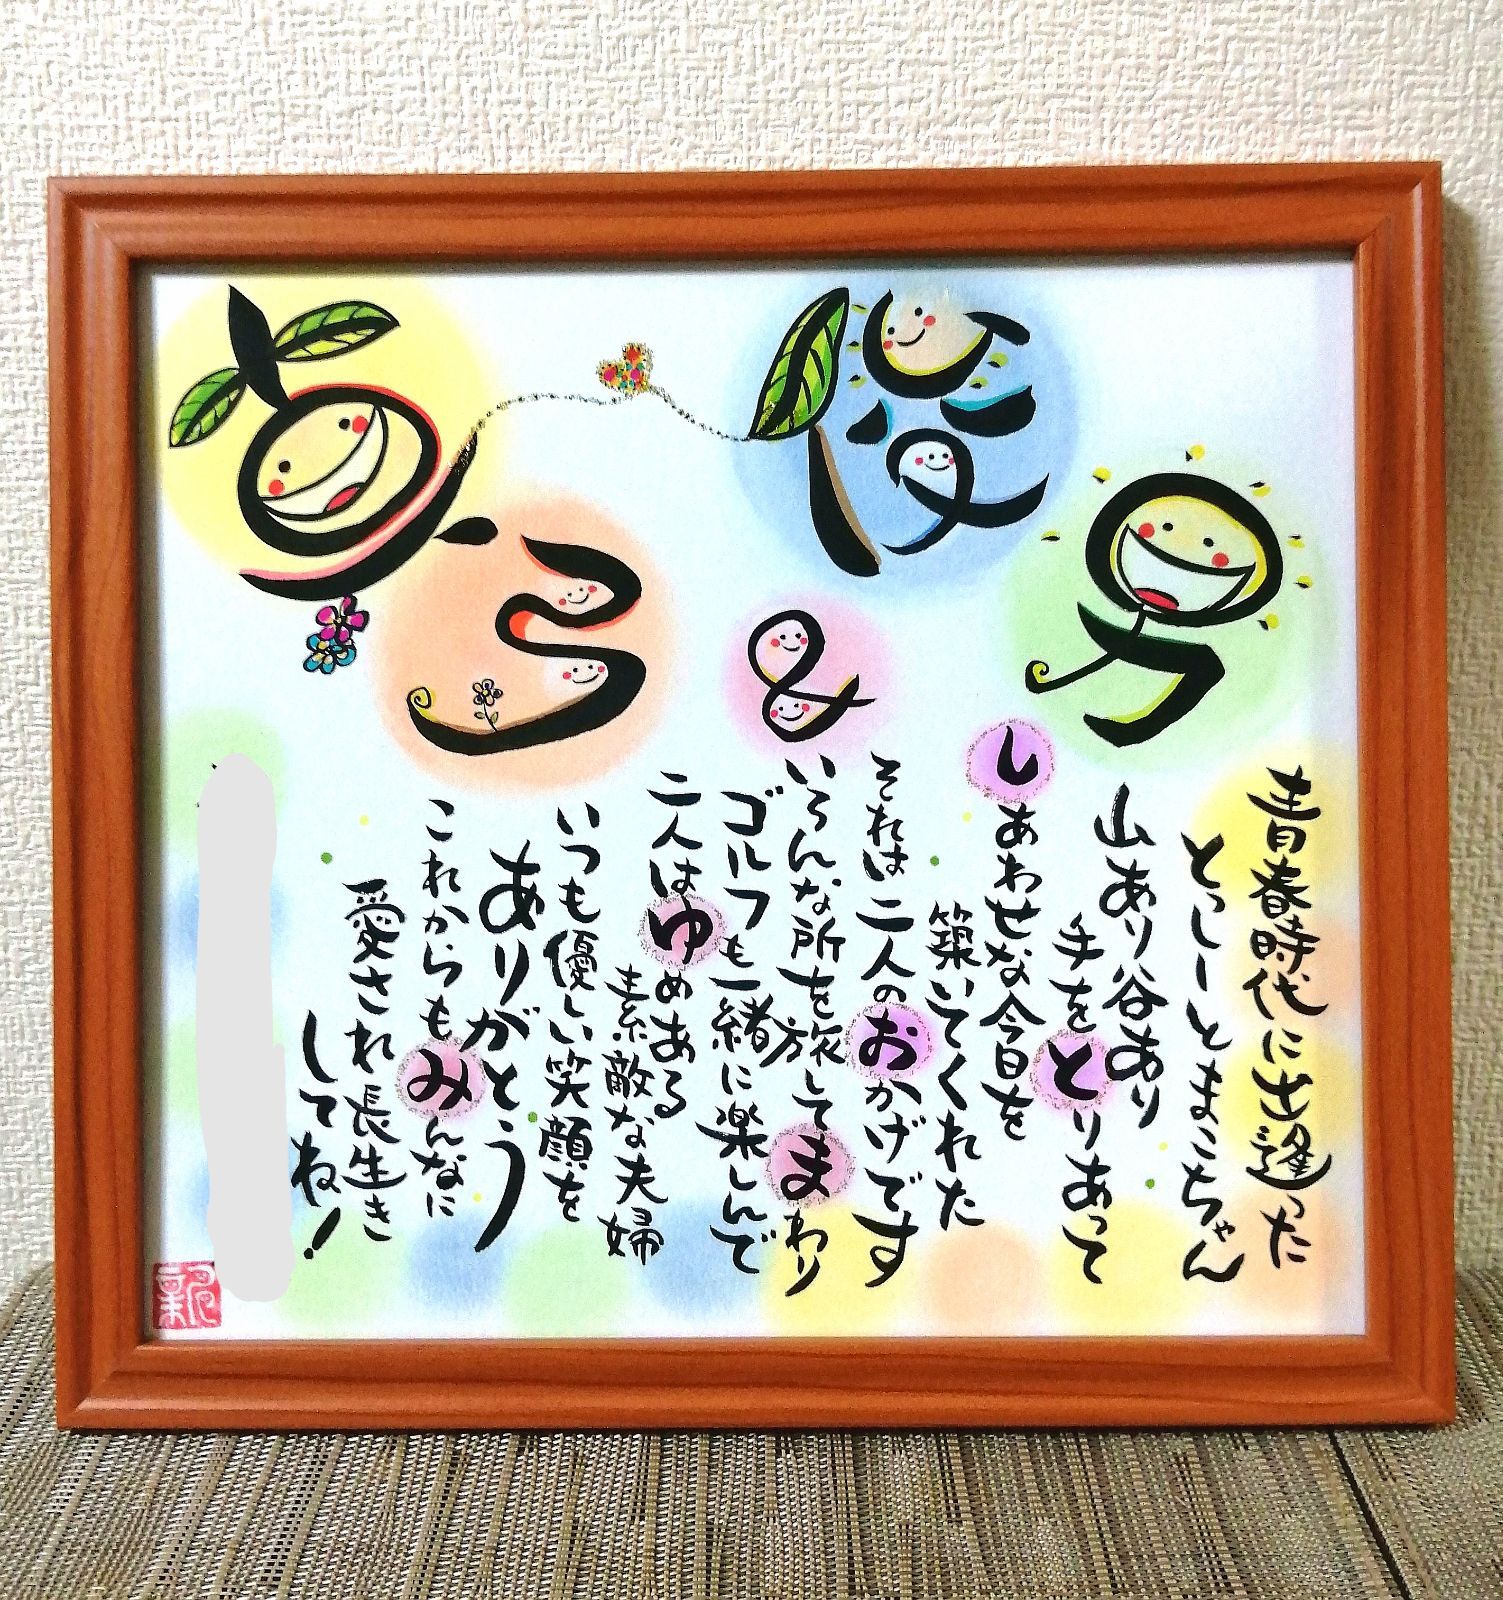 俊男
&
真弓
青春時代に出逢った
とっしーとまこちゃん
山あり谷あり
手をとりあって
しあわせな今日を
築いてくれた
それは二人のおかげです
いろんな所を旅してまわり
ゴルフも一緒に楽しんで
二人はゆめある
素敵な夫婦
いつも優しい笑顔を
ありがとう
これからもみんなに
愛され長生き
してね!